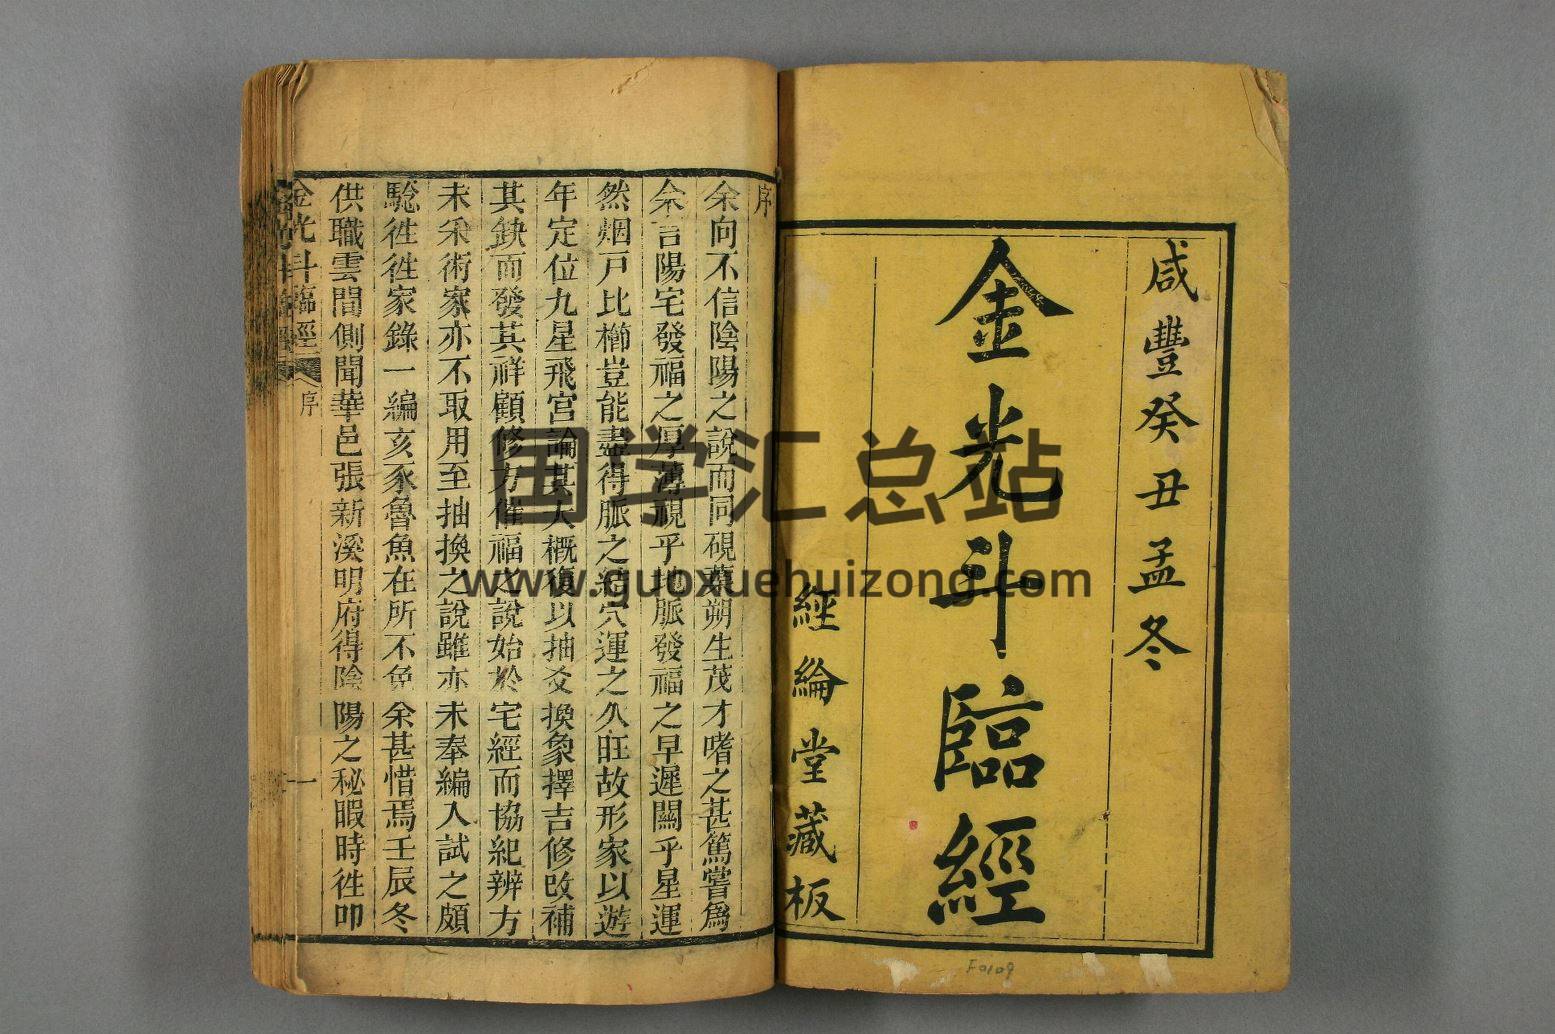 咸豐癸丑孟冬
金光斗臨經
經綸堂藏板
序
余向不信陰陽之說而同硯蔡朔生茂才嗜之甚篤嘗爲
余言陽宅發福之厚薄視乎地脈發福之早遲關乎星運
然烟戸比櫛豈能盡得脈之結穴運之久旺故形家以遊
年定位九星飛宮論其大概復以抽爻換象擇吉修改補
其鈌而發其祥顧修方催福之說始於宅經而協紀辨方
未采術家亦不取用至抽換之說雖亦未奉編入試之頗
騐徃徃家錄一編亥豕魯魚在所不免余甚惜焉壬辰冬
供職雲間側聞華邑張新溪明府得陰陽之秘暇時徃叩
金光斗臨經
序
一
国学汇总站
www.guoxuehuizong.com
F0109